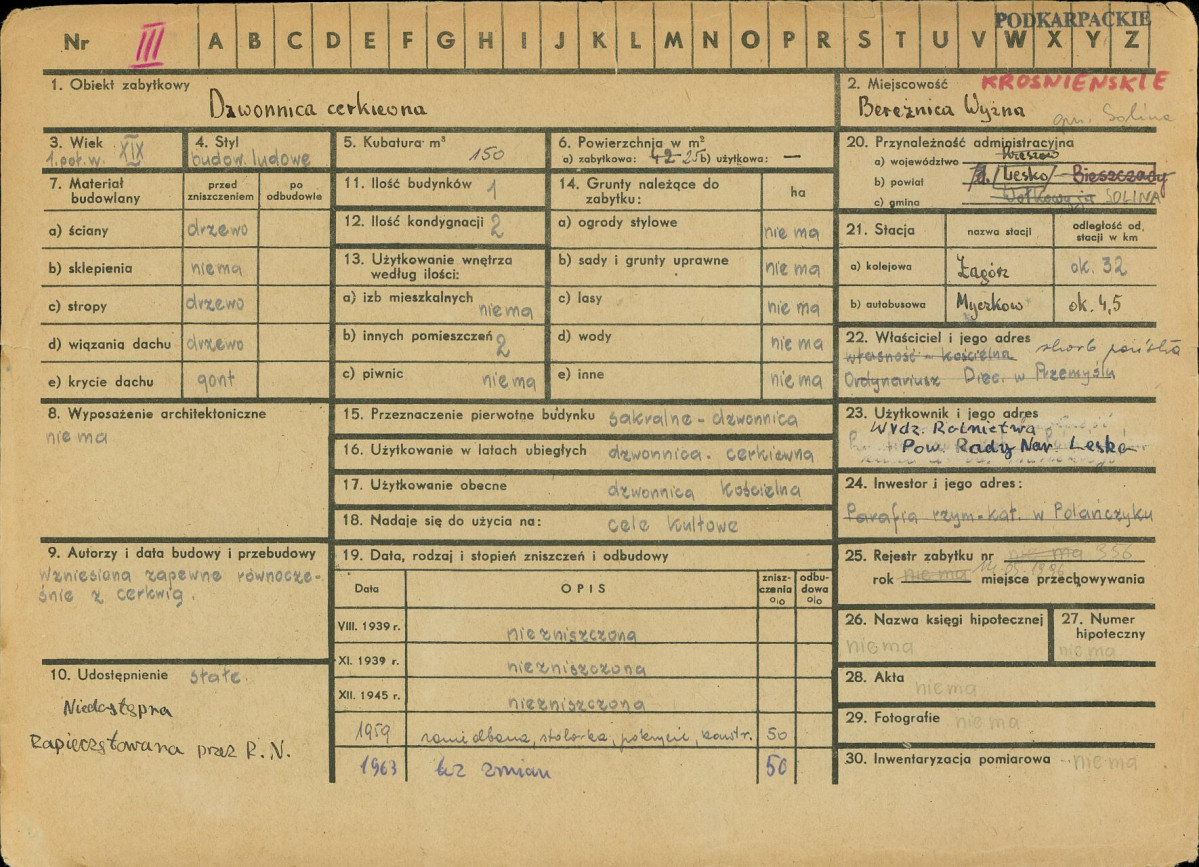 PODKARPACKIE
Nr III A B C D E F G H I J K L M N O P R S T U V W X Y Z
1. Obiekt zabytkowy
Dzwonnica cerkiewna
2. Miejscowość KROŚNIEŃSKIE
Bereżnica Wyżna gm. Solina
3. Wiek
1. poł. w. XIX
4. Styl
budow. ludowe
5. Kubatura m³
150
6. Powierzchnia w m²
a) zabytkowa: 42 25 b) użytkowa: —
7. Materiał budowlany
przed zniszczeniem
po odbudowie
a) ściany drzewo
b) sklepienia nie ma
c) stropy drzewo
d) wiązania dachu drzewo
e) krycie dachu gont
8. Wyposażenie architektoniczne
nie ma
9. Autorzy i data budowy i przebudowy
Wzniesiona zapewne równocze-
śnie z cerkwią.
10. Udostępnienie stałe.
Niedostępna
Zapieczętowana przez R.N.
11. Ilość budynków 1
12. Ilość kondygnacji 2
13. Użytkowanie wnętrza
według ilości:
a) izb mieszkalnych
nie ma
b) innych pomieszczeń 2
c) piwnic nie ma
14. Grunty należące do
zabytku:
ha
a) ogrody stylowe nie ma
b) sady i grunty uprawne nie ma
c) lasy nie ma
d) wody nie ma
e) inne nie ma
15. Przeznaczenie pierwotne budynku sakralne - dzwonnica
16. Użytkowanie w latach ubiegłych dzwonnica. cerkiewna
17. Użytkowanie obecne dzwonnica kościelna
18. Nadaje się do użycia na: cele kultowe
19. Data, rodzaj i stopień zniszczeń i odbudowy
Data OPIS znisz-czenia % odbu-dowa %
VIII. 1939 r. niezniszczona
XI. 1939 r. niezniszczona
XII. 1945 r. niezniszczona
1959 zaniedbana, stolarka, pokrycie, konstr. 50
1963 bez zmian 50
20. Przynależność administracyjna
a) województwo Rzeszów
b) powiat Lesko Bieszczady
c) gmina Wołkowyja SOLINA
21. Stacja
nazwa stacji
odległość od stacji w km
a) kolejowa Zagórz ok. 32
b) autobusowa Myczków ok. 4,5
22. Właściciel i jego adres
własność - kościelna skarb państwa
Ordynariusz Diec. w Przemyślu
23. Użytkownik i jego adres
Wydz. Rolnictwa
Pow. Rady Nar. Lesko
24. Inwestor i jego adres:
Parafia rzym-kat. w Polańczyku
25. Rejestr zabytku nr nie ma 356
rok nie ma miejsce przechowywania
26. Nazwa księgi hipotecznej
nie ma
27. Numer hipoteczny
nie ma
28. Akta
nie ma
29. Fotografie nie ma
30. Inwentaryzacja pomiarowa nie ma